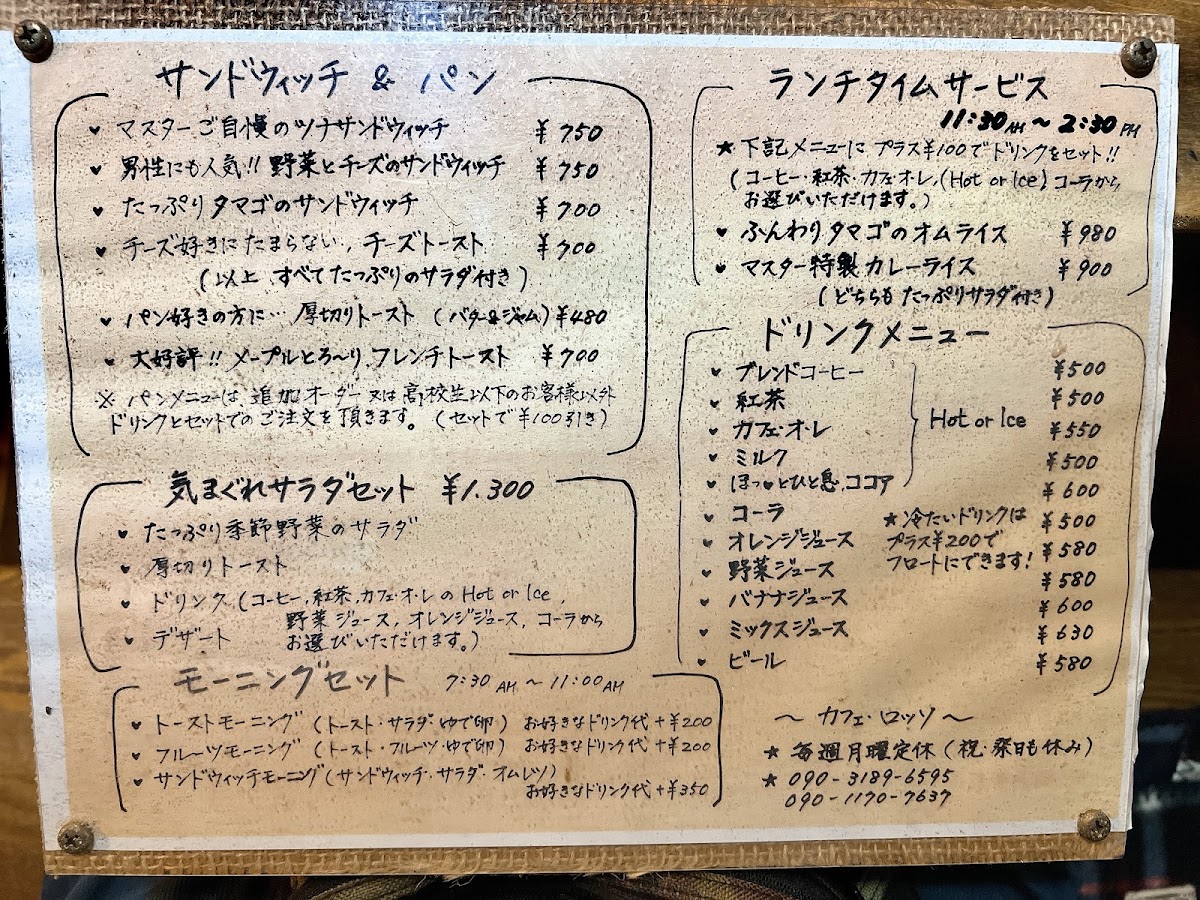 サンドウィッチ & パン
♥ マスターご自慢のツナサンドウィッチ ¥750
♥ 男性にも人気!! 野菜とチーズのサンドウィッチ ¥750
♥ たっぷりタマゴのサンドウィッチ ¥700
♥ チーズ好きにたまらない、チーズトースト ¥700
(以上、すべてたっぷりのサラダ付き)
♥ パン好きの方に… 厚切りトースト (バター&ジャム) ¥480
♥ 大好評!! メープルとろ〜り、フレンチトースト ¥700
※ パンメニューは、追加オーダー又は高校生以下のお客様以外
ドリンクとセットでのご注文を頂きます。(セットで¥100引き)
気まぐれサラダセット ¥1.300
♥ たっぷり季節野菜のサラダ
♥ 厚切りトースト
♥ ドリンク (コーヒー、紅茶、カフェ・オ・レの Hot or Ice、
野菜ジュース、オレンジジュース、コーラから
♥ デザート お選びいただけます。)
モーニングセット 7:30 AM 〜 11:00 AM
♥ トーストモーニング (トースト・サラダ・ゆで卵) お好きなドリンク代 +¥200
♥ フルーツモーニング (トースト・フルーツ・ゆで卵) お好きなドリンク代 +¥200
♥ サンドウィッチモーニング (サンドウィッチ・サラダ・オムレツ)
お好きなドリンク代 +¥350
ランチタイムサービス
11:30 AM 〜 2:30 PM
★ 下記メニューに プラス¥100で ドリンクをセット!!
(コーヒー・紅茶・カフェ・オ・レ、(Hot or Ice) コーラから
お選びいただけます。)
♥ ふんわりタマゴのオムライス ¥980
♥ マスター特製 カレーライス ¥900
(どちらも たっぷりサラダ付き)
ドリンクメニュー
♥ ブレンドコーヒー ¥500
♥ 紅茶 ¥500
♥ カフェ・オ・レ Hot or Ice ¥550
♥ ミルク ¥500
♥ ほっ♥とひと息、ココア ¥600
♥ コーラ ¥500
♥ オレンジジュース ¥580
♥ 野菜ジュース ¥580
♥ バナナジュース ¥600
♥ ミックスジュース ¥630
♥ ビール ¥580
★ 冷たいドリンクは
プラス¥200で
フロートにできます!
〜 カフェ・ロッソ 〜
★ 毎週月曜定休 (祝・祭日も休み)
★ 090-3189-6595
090-1170-7637